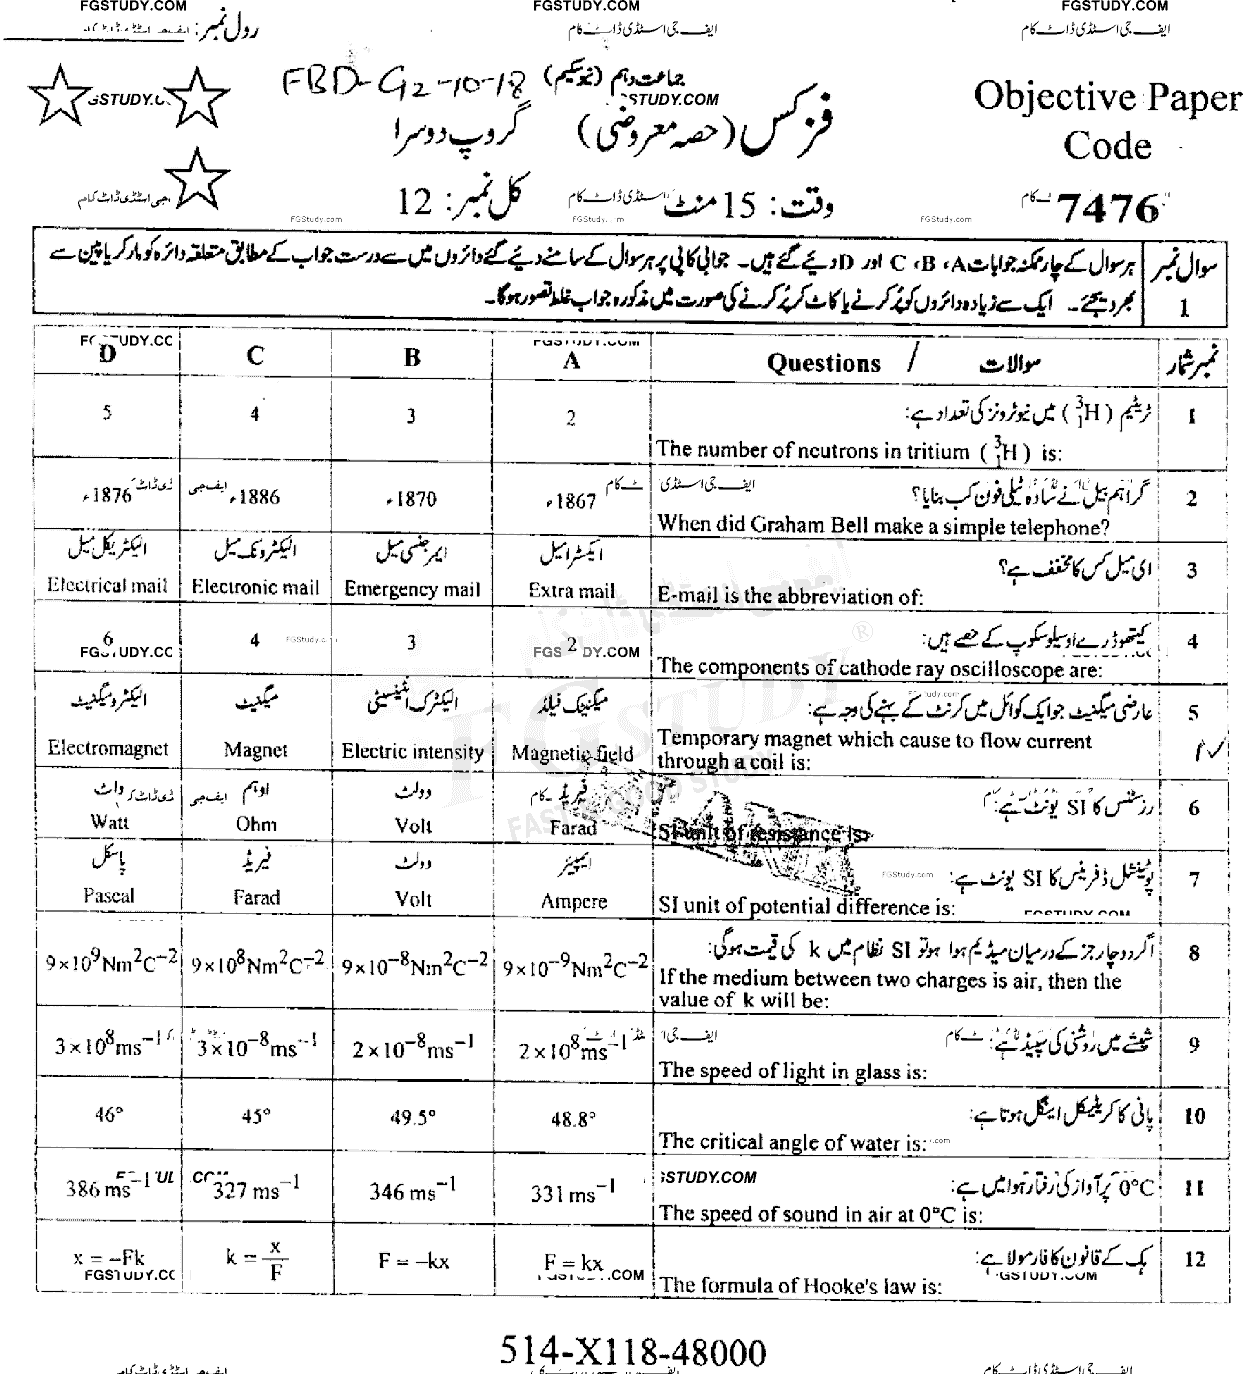 FGSTUDY.COM FGSTUDY.COM FGSTUDY.COM
رول نمبر: ایف جی اسٹڈی ڈاٹ کام ایف جی اسٹڈی ڈاٹ کام
FBD-G2-10-18 جماعت دہم (نیو سکیم)
GSTUDY.C STUDY.COM
Objective Paper
فزکس (حصہ معروضی) گروپ دوسرا
Code
وقت: 15 منٹ کل نمبر: 12
7476
FGStudy.com FGStudy.com
سوال نمبر 1
ہر سوال کے چار ممکنہ جوابات A، B، C اور D دیئے گئے ہیں۔ جوابی کاپی پر ہر سوال کے سامنے دیئے گئے دائروں میں سے درست جواب کے مطابق متعلقہ دائرہ کو مارکر یا پین سے
بھر دیجئے۔ ایک سے زیادہ دائروں کو پُر کرنے یا کاٹ کر پُر کرنے کی صورت میں مذکورہ جواب غلط تصور ہوگا۔
D C B A Questions / سوالات نمبر شمار
1 ٹریٹیم (³₁H) میں نیوٹرونز کی تعداد ہے:
5 4 3 2
The number of neutrons in tritium (³₁H) is:
2 گراہم بیل نے سادہ ٹیلی فون کب بنایا؟
1876ء 1886ء 1870ء 1867ء
When did Graham Bell make a simple telephone?
3 ای میل کس کا مخفف ہے؟
الیکٹریکل میل الیکٹرونک میل ایمرجنسی میل ایکسٹرا میل
Electrical mail Electronic mail Emergency mail Extra mail
E-mail is the abbreviation of:
4 کیتھوڈ رے اوسیلوسکوپ کے حصے ہیں:
6 4 3 2
The components of cathode ray oscilloscope are:
5 عارضی میگنیٹ جو ایک کوائل میں کرنٹ کے بہنے کی وجہ ہے:
الیکٹرومیگنیٹ میگنیٹ الیکٹرک انٹینسیٹی میگنیٹک فیلڈ
Electromagnet Magnet Electric intensity Magnetic field
Temporary magnet which cause to flow current
through a coil is:
6 رزسٹنس کا SI یونٹ ہے:
واٹ اوہم وولٹ فیرڈ
Watt Ohm Volt Farad
SI unit of resistance is:
7 پوٹینشل ڈفرینس کا SI یونٹ ہے:
پاسکل فیرڈ وولٹ ایمپیئر
Pascal Farad Volt Ampere
SI unit of potential difference is:
8 اگر دو چارجز کے درمیان میڈیم ہوا ہو تو SI نظام میں k کی قیمت ہوگی:
9×10⁹Nm²C⁻² 9×10⁸Nm²C⁻² 9×10⁻⁸Nm²C⁻² 9×10⁻⁹Nm²C⁻²
If the medium between two charges is air, then the
value of k will be:
9 شیشے میں روشنی کی سپیڈ ہے:
3×10⁸ms⁻¹ 3×10⁻⁸ms⁻¹ 2×10⁻⁸ms⁻¹ 2×10⁸ms⁻¹
The speed of light in glass is:
10 پانی کا کریٹیکل اینگل ہوتا ہے:
46° 45° 49.5° 48.8°
The critical angle of water is:
11 0°C پر آواز کی رفتار ہوا میں ہے:
386 ms⁻¹ 327 ms⁻¹ 346 ms⁻¹ 331 ms⁻¹
The speed of sound in air at 0°C is:
12 ہک کے قانون کا فارمولا ہے:
x = –Fk k = x/F F = –kx F = kx
The formula of Hooke's law is:
514-X118-48000